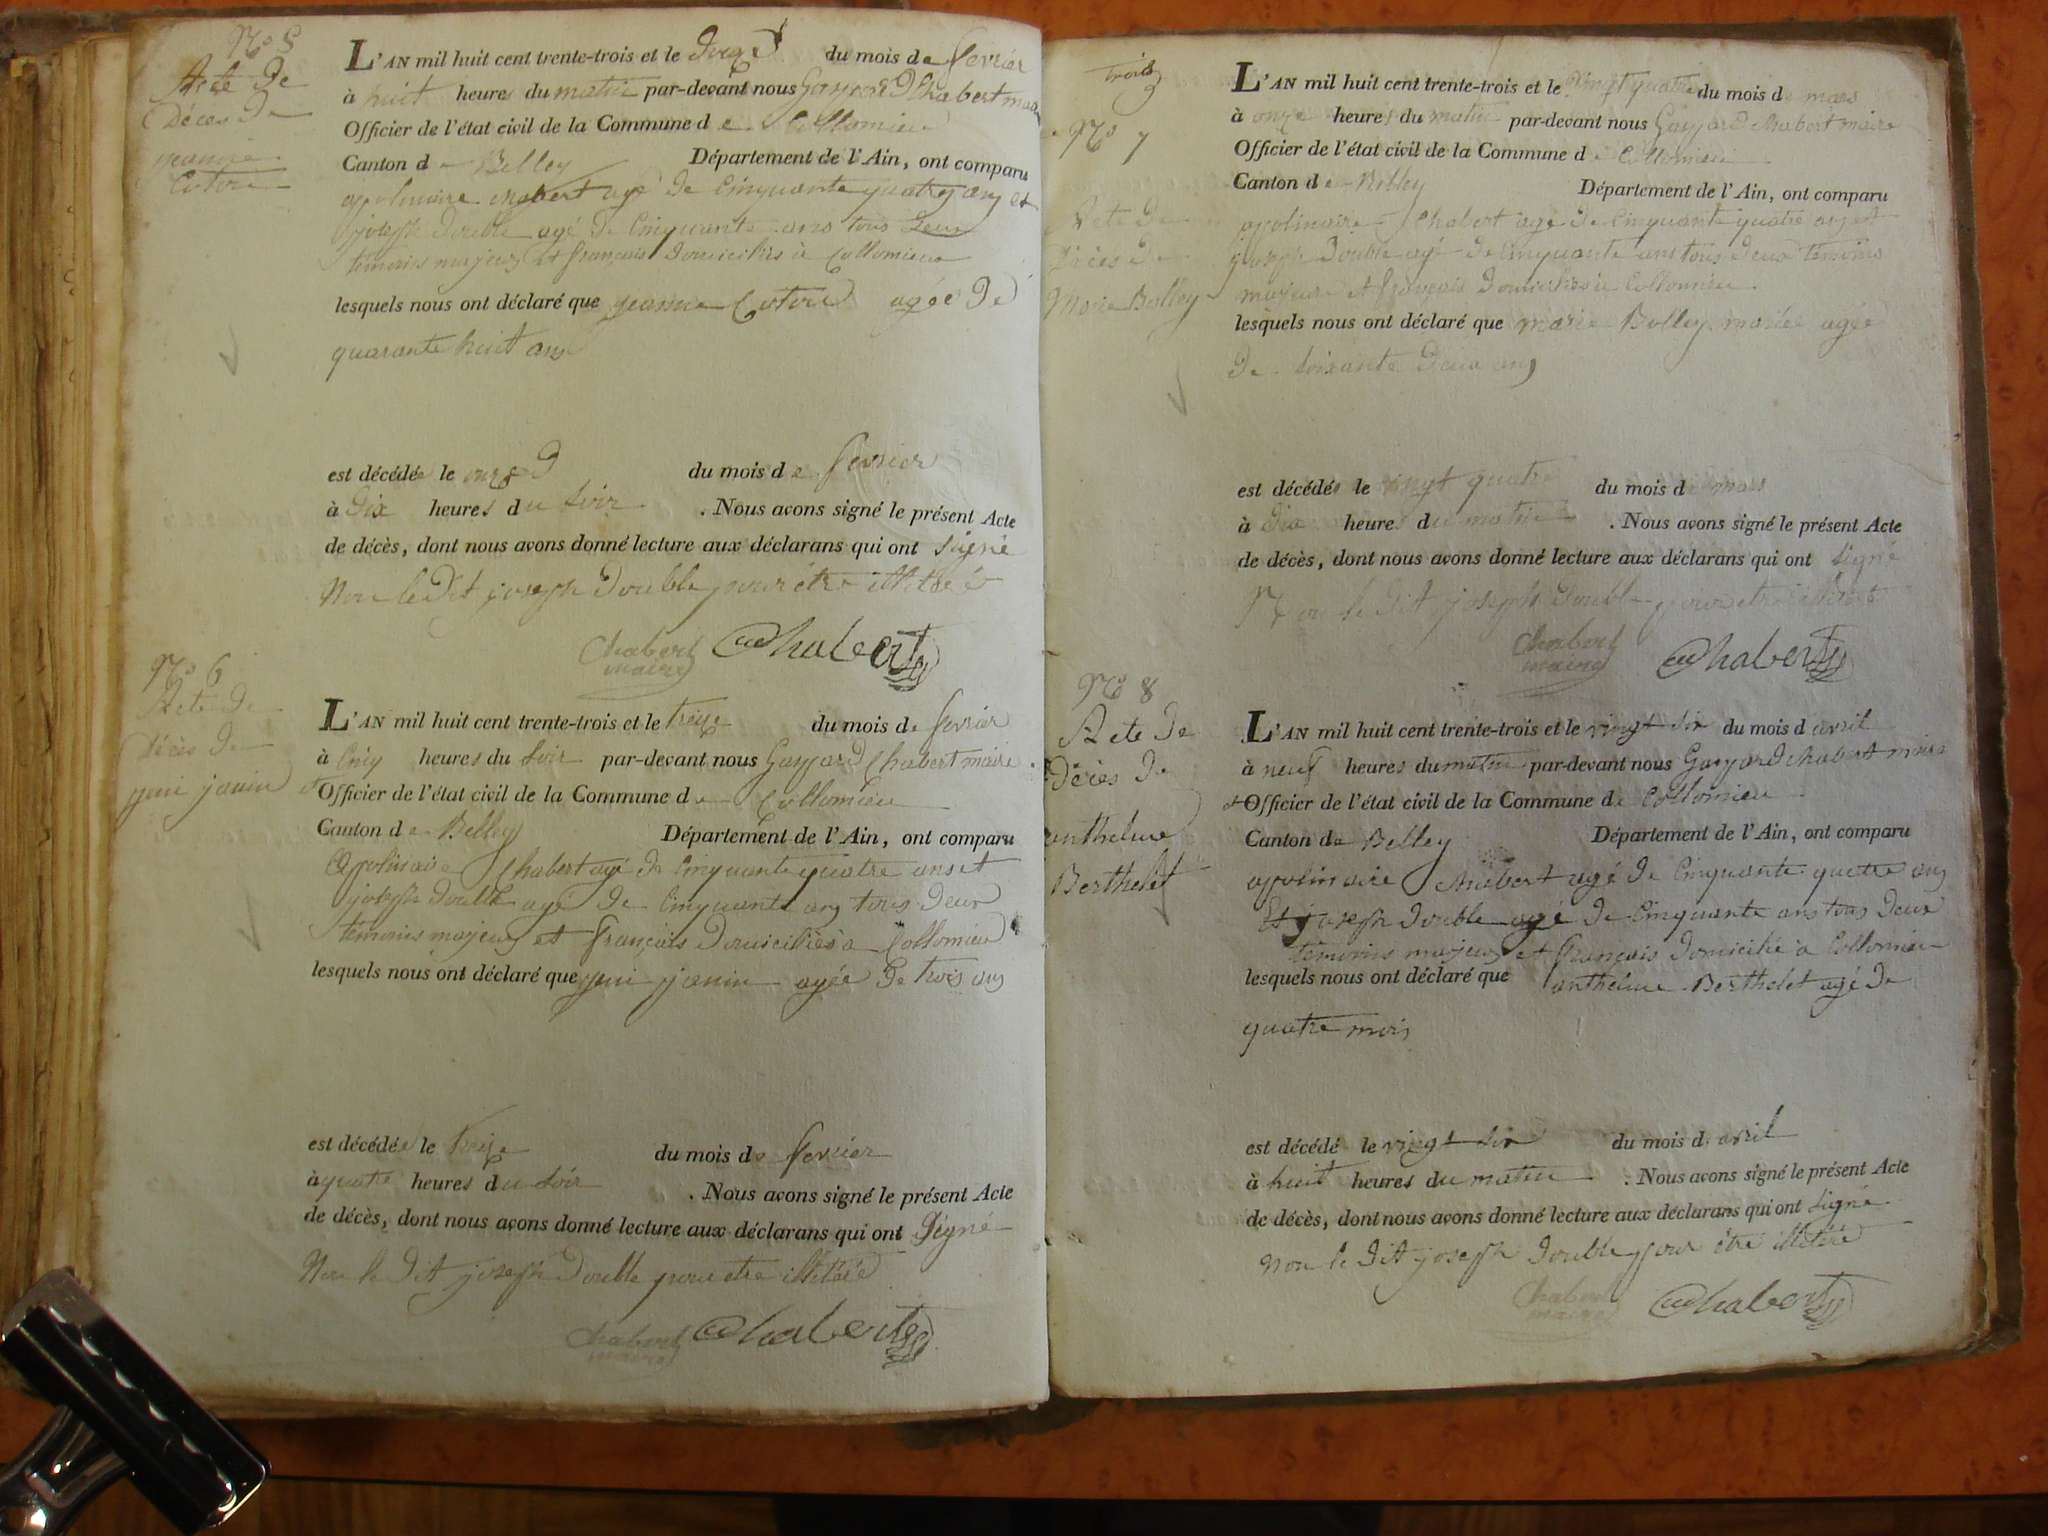 N° 5
Acte de
Décès de
jeanne
L'AN mil huit cent trente-trois et le douze du mois de fevrier
à huit heures du matin par-devant nous Gaspard Chabert maire
Officier de l'état civil de la Commune de Collomieu
Canton de Belley Département de l'Ain, ont comparu
appolinaire chabert agé de Cinquante quatre ans et
joseph Double agé de Cinquante ans tous deux
temoins majeurs et français domiciliés à Collomieu
lesquels nous ont déclaré que jeanne agée de
quarante huit ans
est décédée le onze du mois de fevrier
à Dix heures du soir . Nous avons signé le présent Acte
de décès, dont nous avons donné lecture aux déclarans qui ont signé
Non le dit joseph Double pour être illitéré
Chabert maire
Chabert
N° 6
Acte de
Décès de
janin
L'AN mil huit cent trente-trois et le treize du mois de fevrier
à Cinq heures du soir par-devant nous Gaspard Chabert maire
Officier de l'état civil de la Commune de Collomieu
Canton de Belley Département de l'Ain, ont comparu
Apolinaire Chabert agé de Cinquante quatre ans et
joseph Double agé de Cinquante ans tous deux
temoins majeurs et français Domiciliés à Collomieu
lesquels nous ont déclaré que janin agée de trois ans
est décédée le treize du mois de fevrier
à quatre heures du soir . Nous avons signé le présent Acte
de décès, dont nous avons donné lecture aux déclarans qui ont Signé
Non le dit joseph Double pour etre illitéré
Chabert maire
Chabert
trois
N° 7
Acte de
Décès de
Marie Bolley
L'AN mil huit cent trente-trois et le vingt quatre du mois de mars
à onze heures du matin par-devant nous Gaspard Chabert maire
Officier de l'état civil de la Commune de Collomieu
Canton de Belley Département de l'Ain, ont comparu
appolinaire Chabert agé de Cinquante quatre ans et
joseph Double agé de Cinquante ans tous deux temoins
majeurs et français Domiciliés à Collomieu
lesquels nous ont déclaré que marie Bolley mariée agée
de soixante deux ans
est décédée le vingt quatre du mois de mars
à dix heures du matin . Nous avons signé le présent Acte
de décès, dont nous avons donné lecture aux déclarans qui ont signé
Non le dit joseph Double pour etre illitéré
Chabert maire
Chabert
N° 8
Acte de
Décès de
anthelme
Berthelet
L'AN mil huit cent trente-trois et le vingt six du mois d avril
à neuf heures du matin par-devant nous Gaspard Chabert maire
Officier de l'état civil de la Commune de Collomieu
Canton de Belley Département de l'Ain, ont comparu
appolinaire Chabert agé de Cinquante quatre ans
Et joseph Double agé de Cinquante ans tous deux
temoins majeurs et Français Domicilié à Collomieu
lesquels nous ont déclaré que anthelme Berthelet agé de
quatre mois
est décédé le vingt six du mois d avril
à huit heures du matin . Nous avons signé le présent Acte
de décès, dont nous avons donné lecture aux déclarans qui ont signé
Non le dit joseph Double pour être illitéré
Chabert maire
Chabert